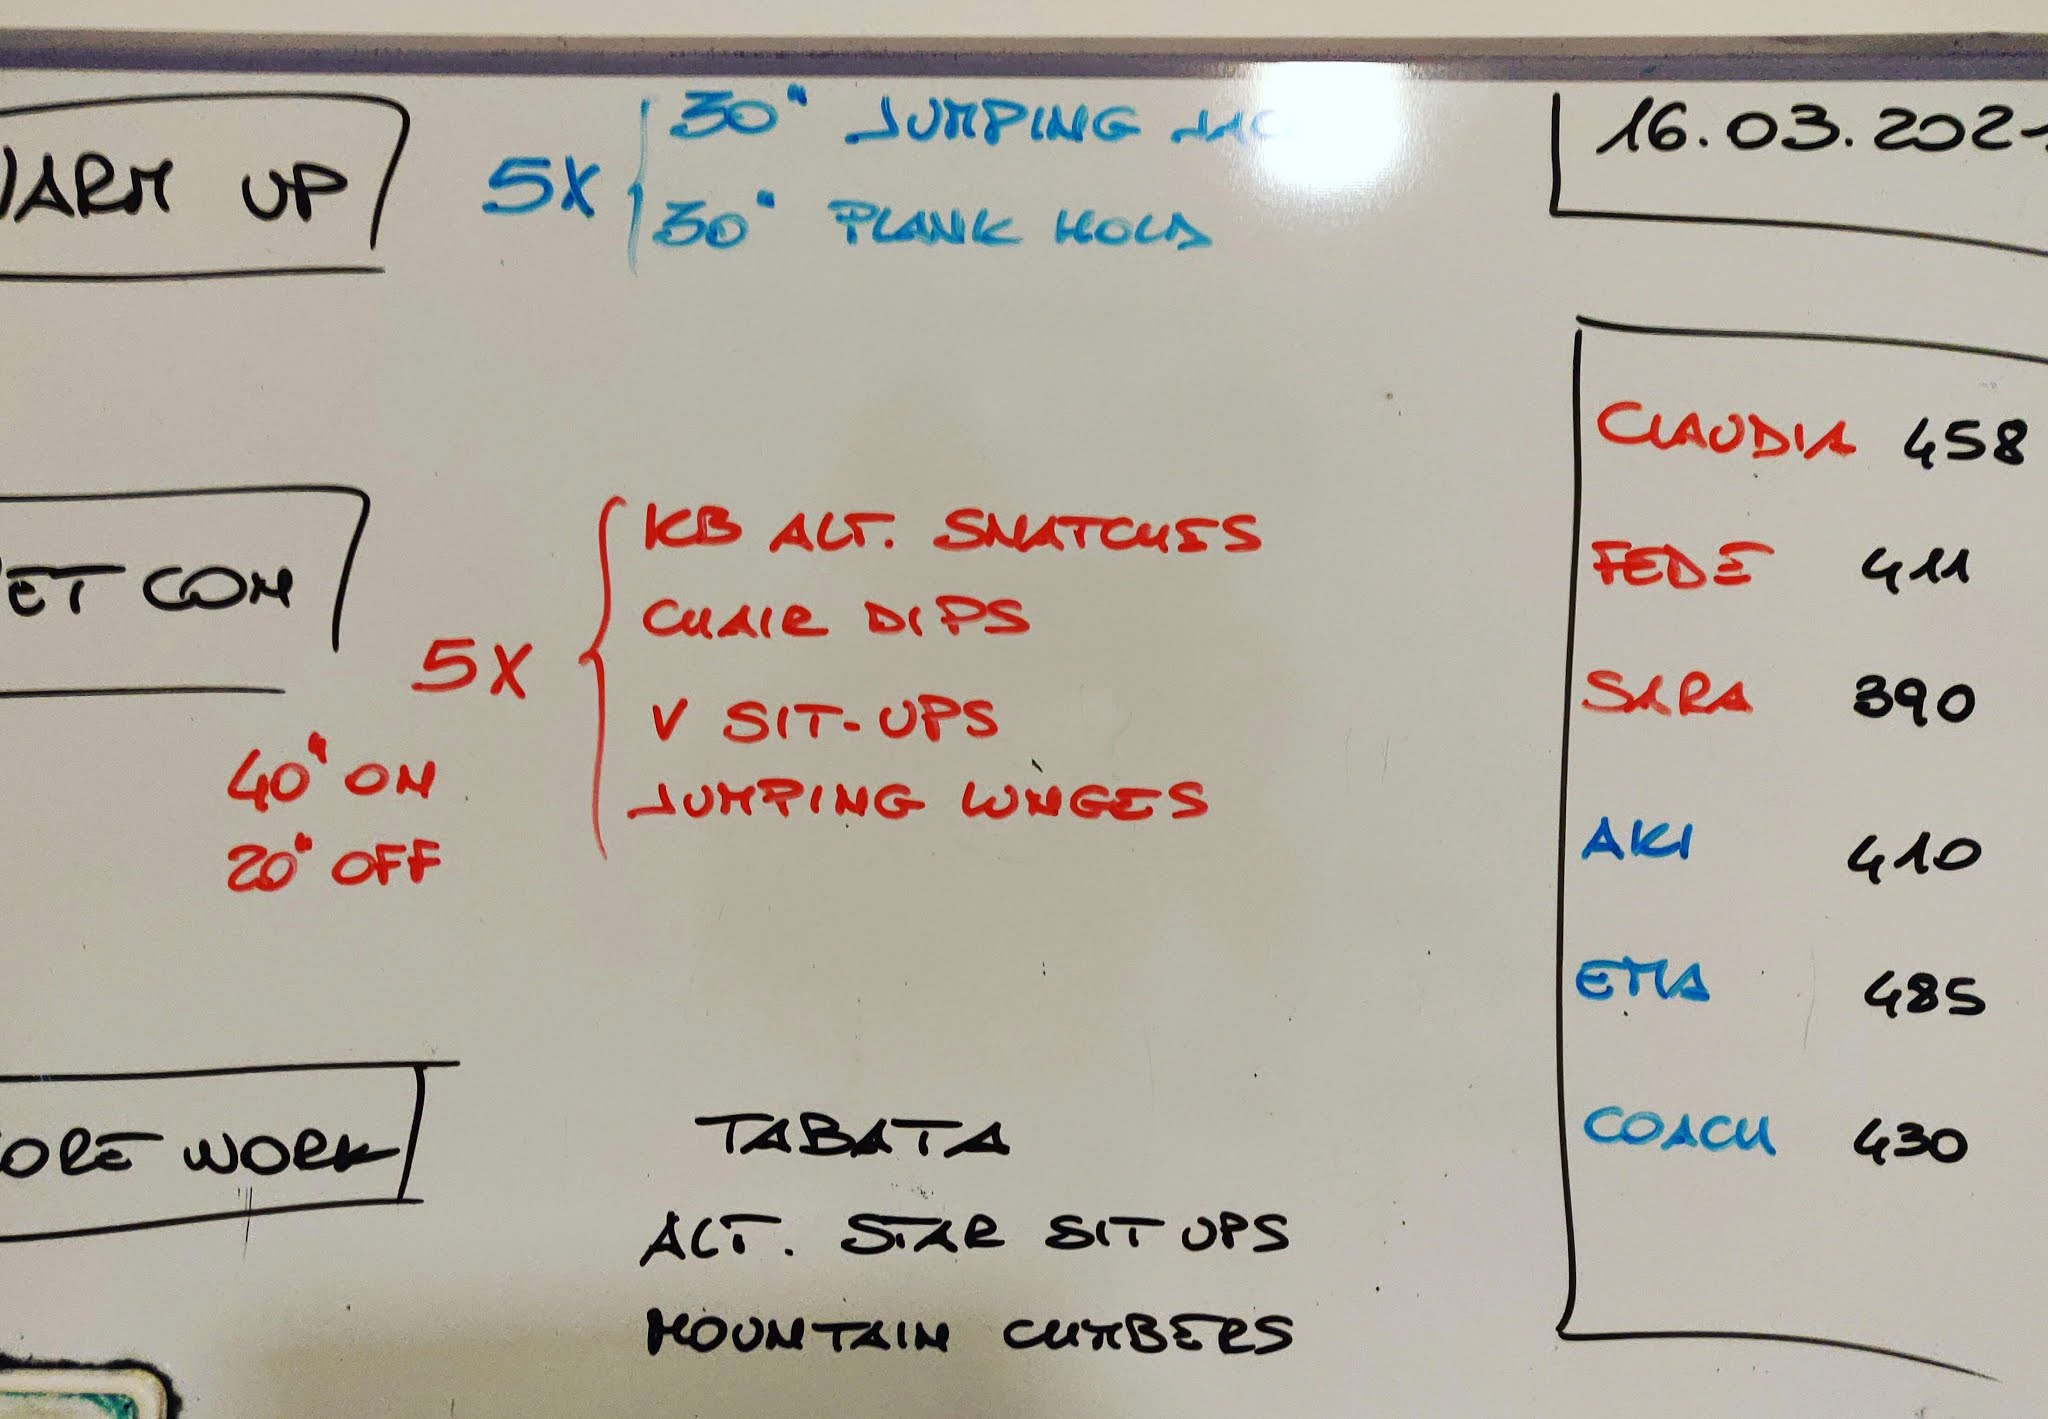 WARM UP
5X
30" JUMPING JAC
30" PLANK HOLD
16.03.2021
MET CON
5X
KB ALT. SNATCHES
CHAIR DIPS
V SIT-UPS
JUMPING LUNGES
40" ON
20" OFF
CORE WORK
TABATA
ALT. STAR SIT UPS
MOUNTAIN CLIMBERS
CLAUDIA 458
FEDE 411
SARA 390
AKI 410
EMA 485
COACH 430